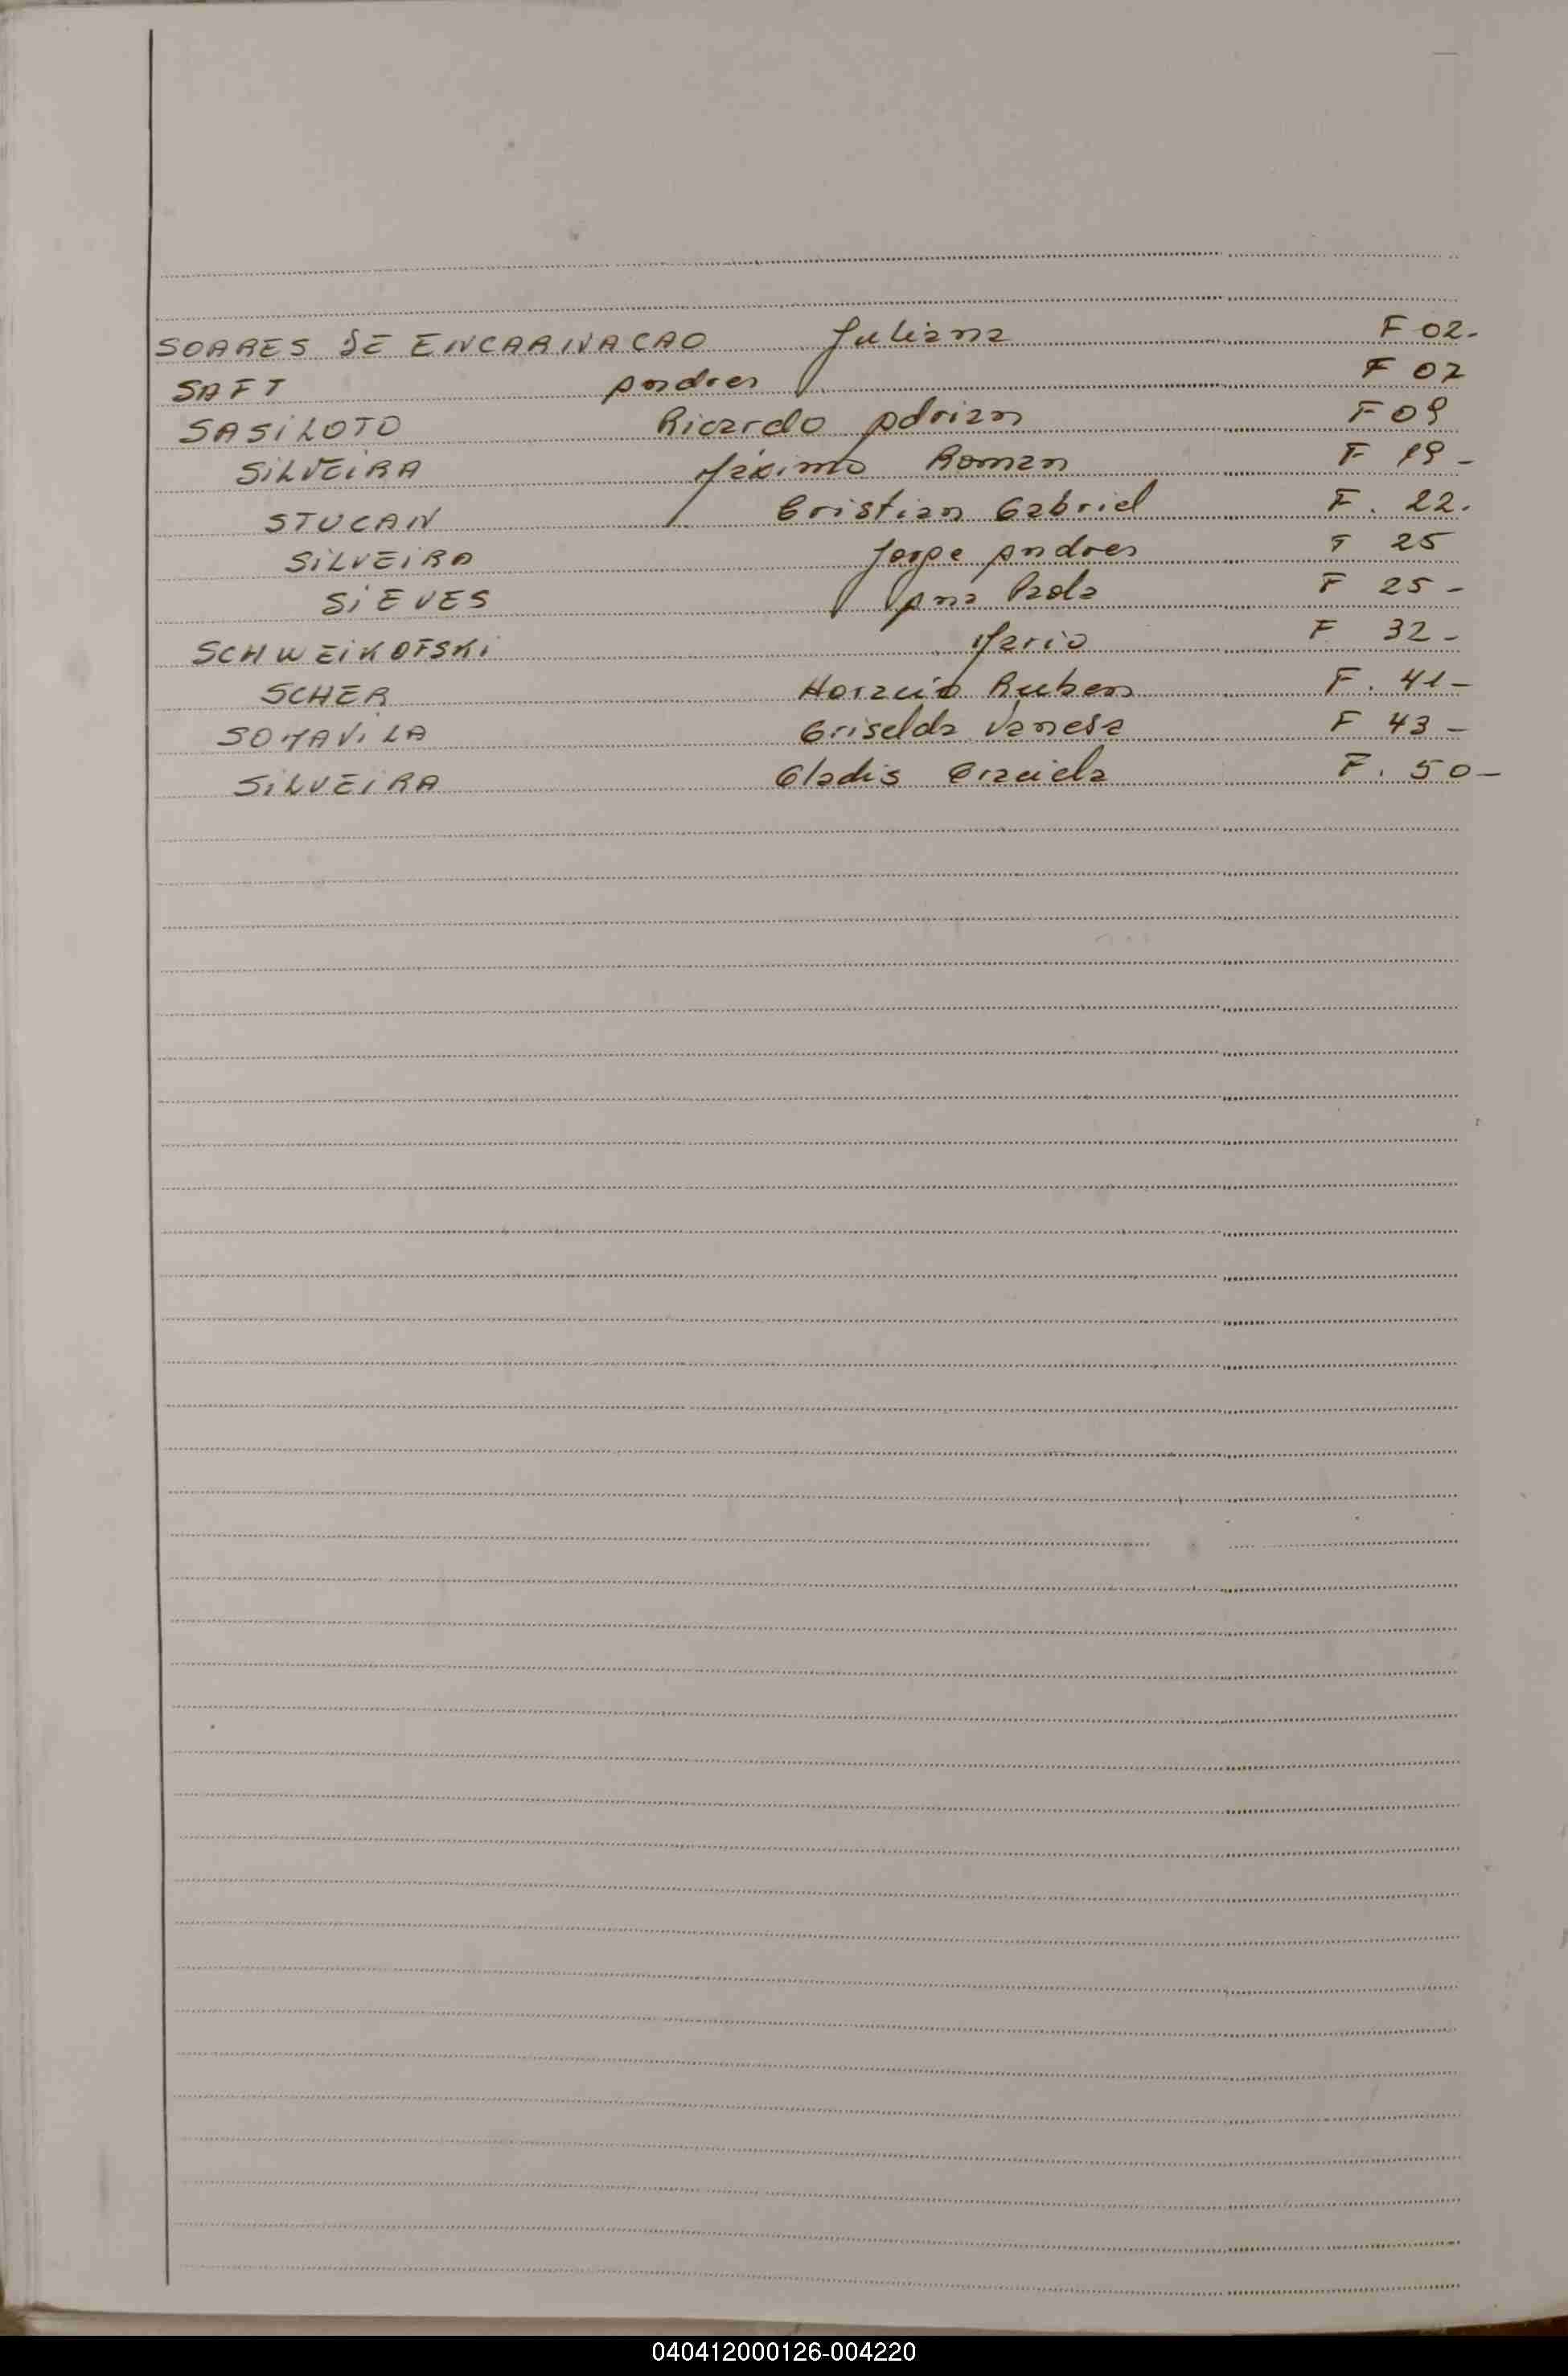 SOARES DE ENCARNACAO Juliana F 02-
SAFT Andres F 07
SASiLOTO Ricardo Adrian F 09
SiLVEiRA Máximo Roman F 19-
STUCAN Cristian Gabriel F. 22.
SiLVEiRA Jorge Andres F 25
SiEVES Ana Paola F 25-
SCHWEiKOFSKi Mario F 32-
SCHER Horacio Ruben F. 41-
SOMAViLA Griselda Vanesa F 43-
SiLVEiRA Gladis Graciela F. 50-
040412000126-004220